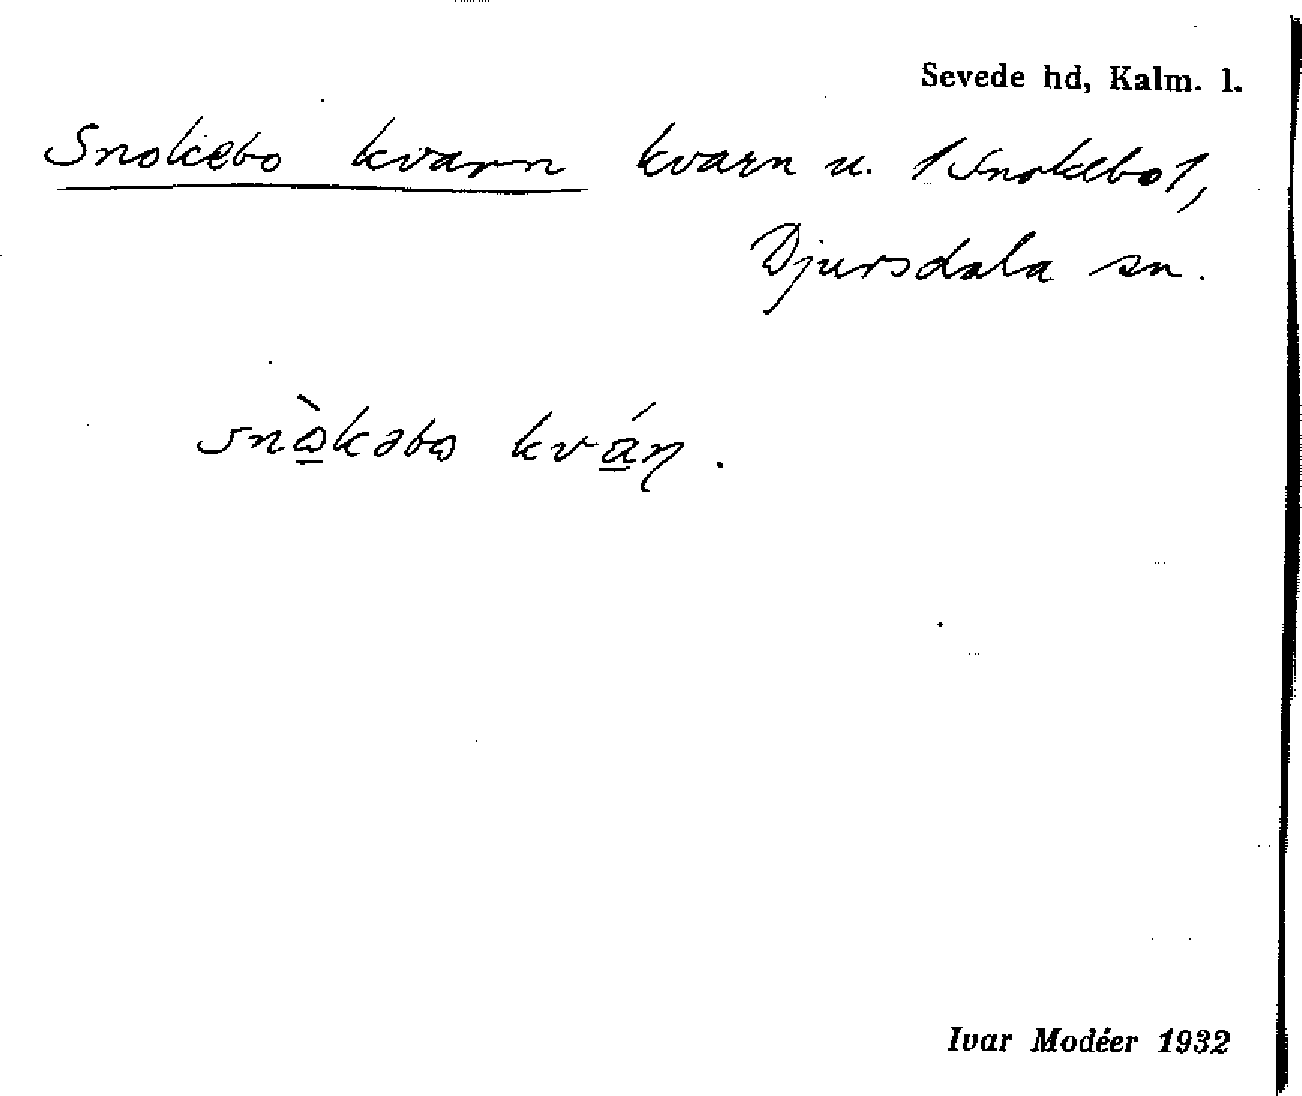 Sevede hd, Kalm. l.
Snokebo kvarn kvarn u. /Snokebo/,
Djursdala sn.
snὼ̱kəbω kvá̱ɳ.
Ivar Modéer 1932